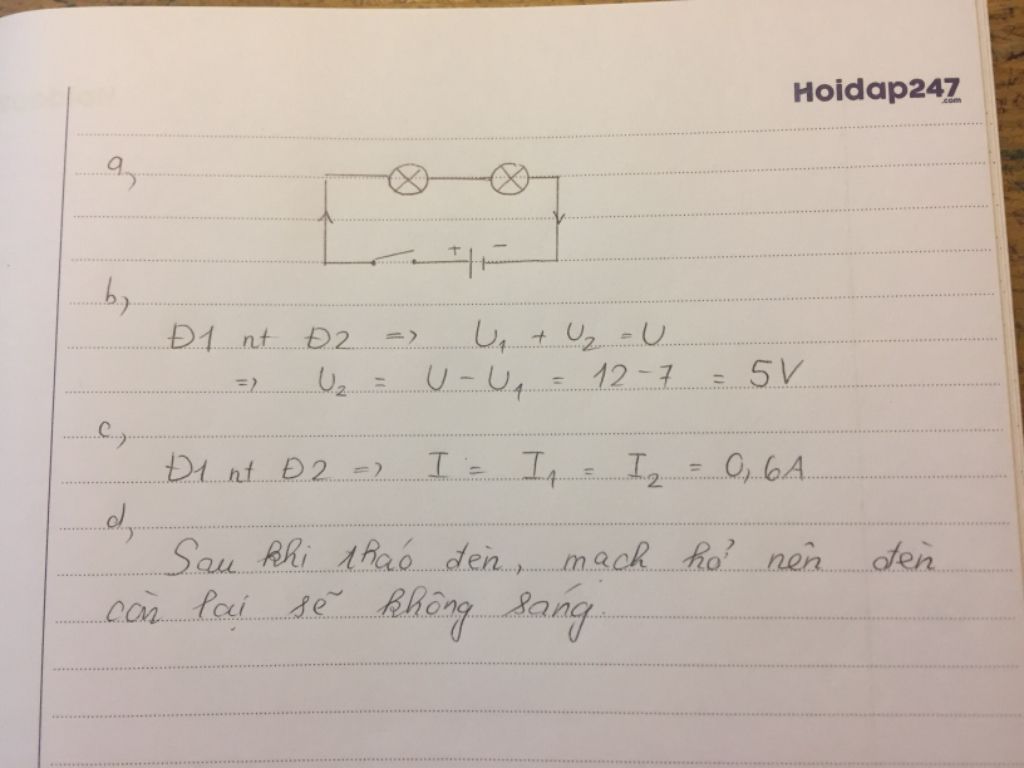 Hoidap247
.com
a,
+ -
b,
Đ1 nt Đ2 => U₁ + U₂ = U
=> U₂ = U - U₁ = 12 - 7 = 5V
c,
Đ1 nt Đ2 => I = I₁ = I₂ = 0,6A
d,
Sau khi tháo đèn, mạch hở nên đèn
còn lại sẽ không sáng.